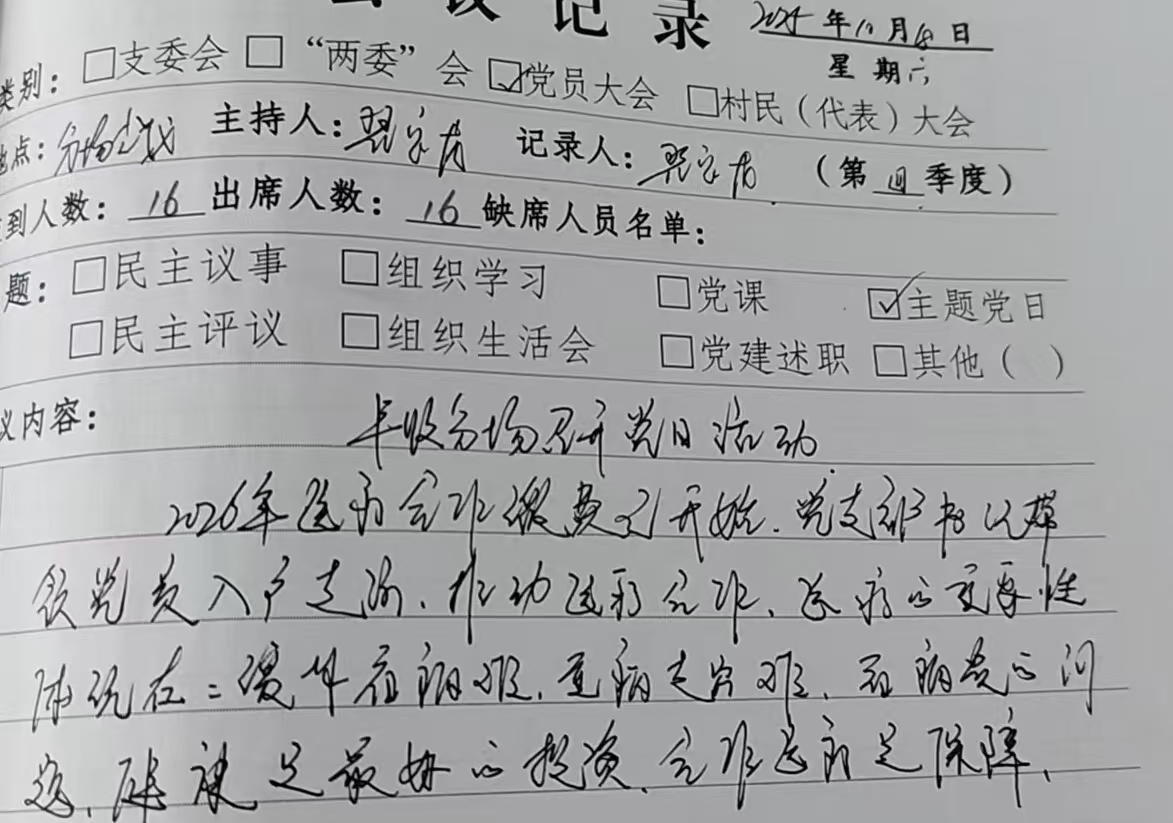 会议记录 2025年10月18日
星期六
类别：☐支委会 ☐“两委”会 ☑党员大会 ☐村民（代表）大会
地点：分场会议 主持人： 记录人： （第四季度）
到人数：16 出席人数：16 缺席人员名单：
题：☐民主议事 ☐组织学习 ☐党课 ☑主题党日
☐民主评议 ☐组织生活会 ☐党建述职 ☐其他（ ）
议内容： 丰收分场召开党日活动
2026年医疗合作缴费已开始，党支部书记带
领党员入户走访、推动医疗合作、医疗的重要性
体现在：缓解看病难，重病支出难，看病贵的问
题，健康是最好的投资，合作医疗是保障，